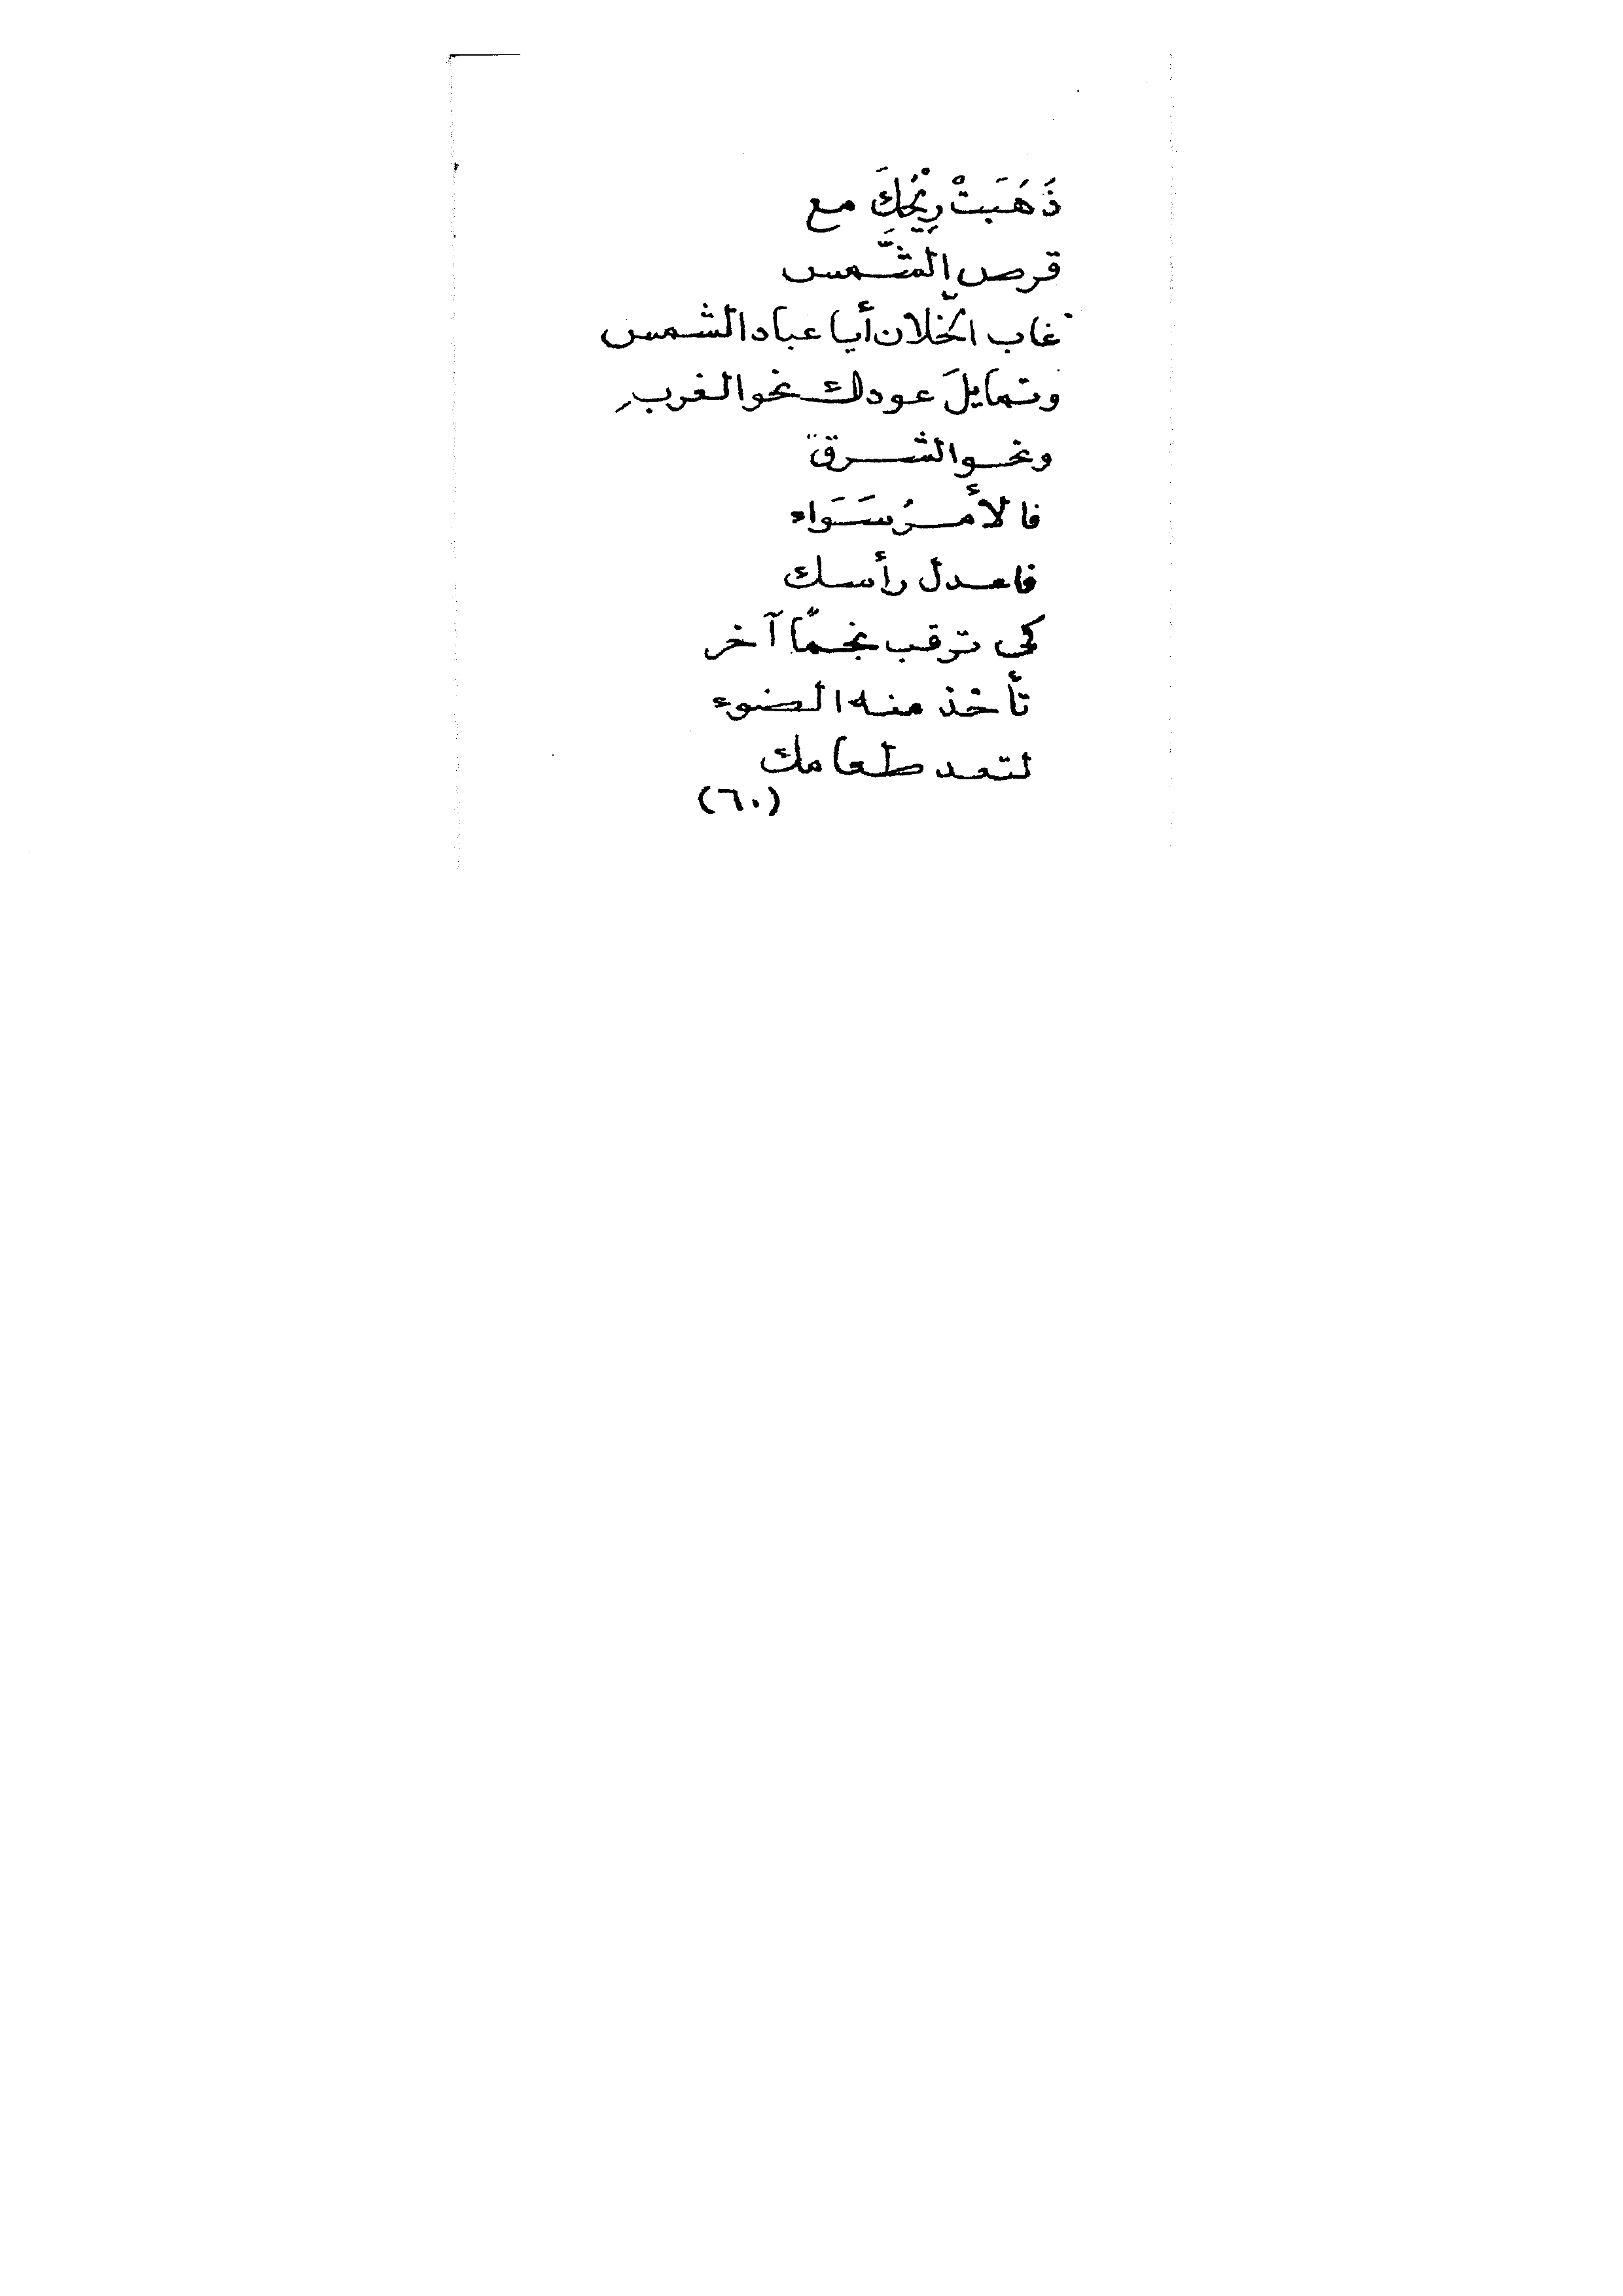 ذَهَبَتْ رِيْحُكَ مع
قرص الشَّمس
غاب الخلّان أيا عباد الشمس
وتمايلَ عودك نحو الغربِ
ونحو الشرق
فالأمرُ سَوَاء
فاعدل رأسك
كي ترقب نجمًا آخر
تأخذ منه الضوء
لتعد طعامك
(٦٠)